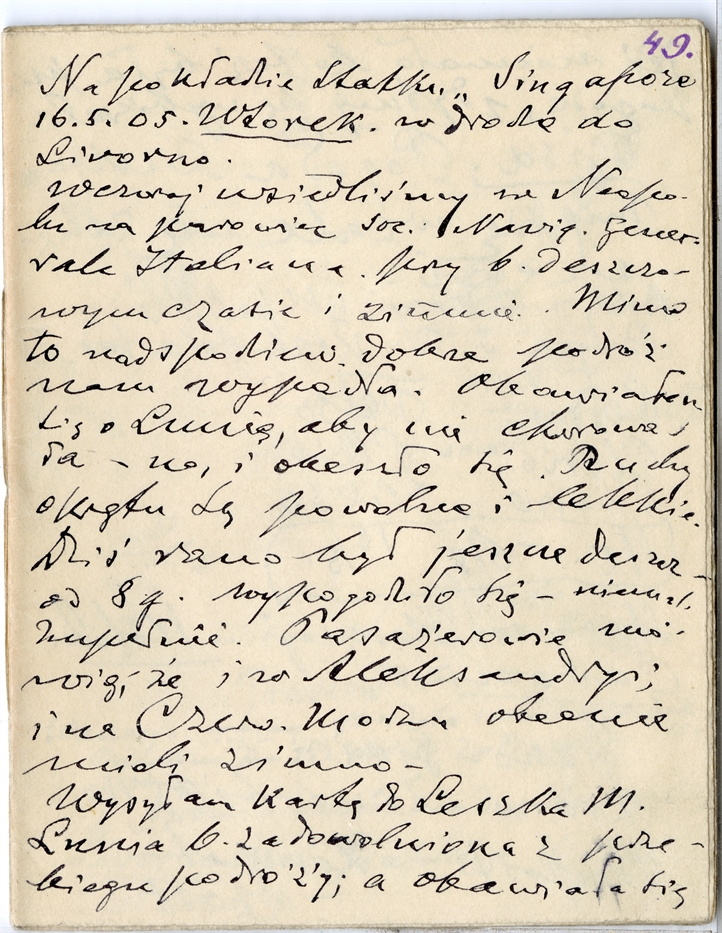 49.
Na pokładzie Statku „Singapore
16.5.05. Wtorek. w drodze do
Livorno.
Wczoraj wsiedliśmy w Neapo-
lu na parowiec Soc. Navig. Gener-
rale Italiana. przy b. deszczo-
wym czasie i zimnie. Mimo
to nadspodziew. dobrze podróż
nam wypadła. Obawiałem
się o Lunię, aby nie chorowa-
ła - no, i obeszło się. Ruchy
okrętu są powolne i lekkie.
Dziś rano był jeszcze deszcz -
od 8 g. wypogodziło się - niemal
zupełnie. Pasażerowie mó-
wią, że i w Aleksandryi,
i na Czerw. Morzu obecnie
mieli zimno -
Wysyłam Kartę do Leszka M.
Lunia b. zadowolniona z prze-
biegu podróży; a obawiała się